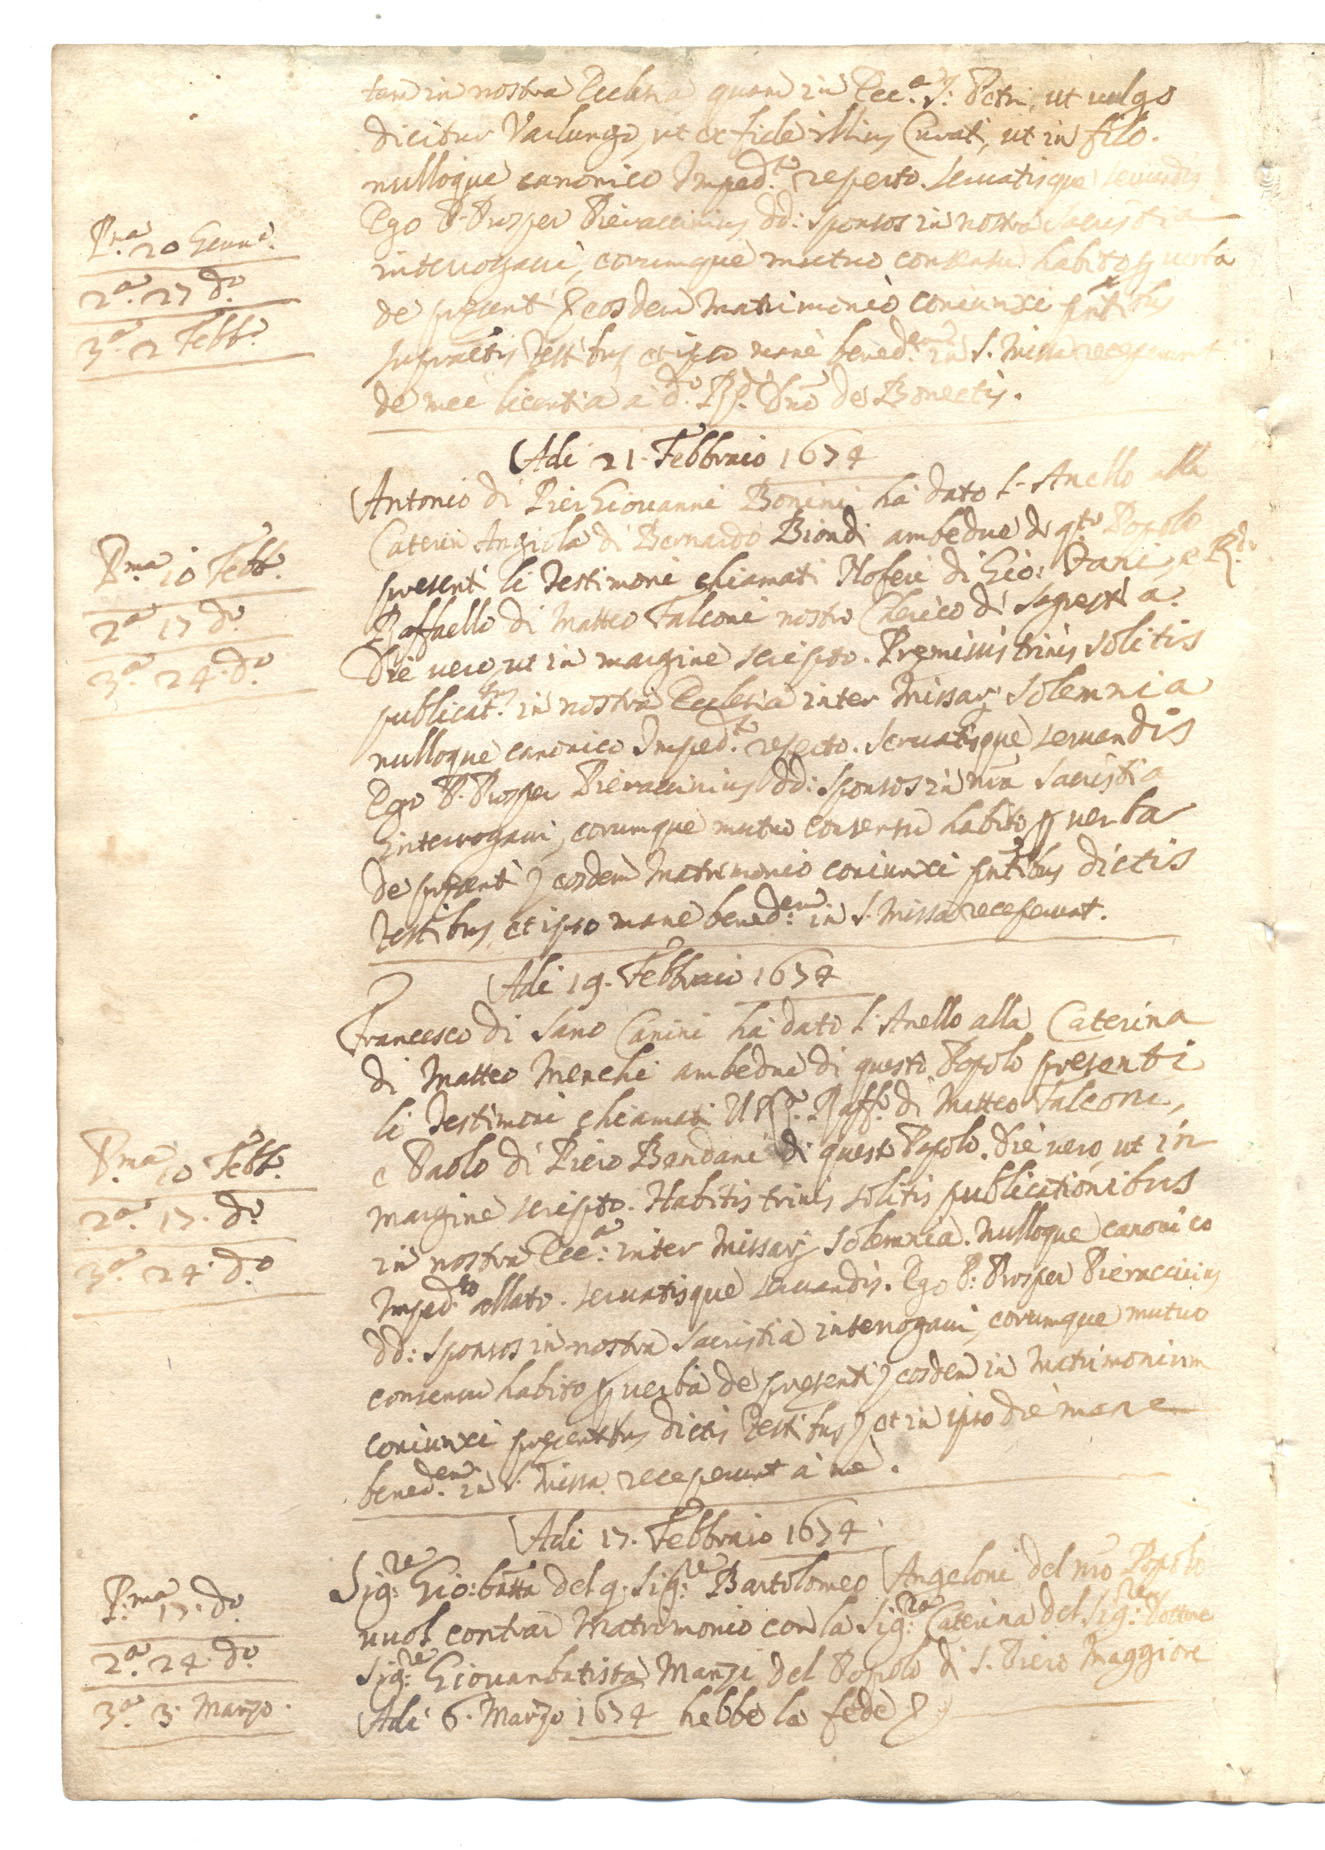 tam in nostra Ecclesia quam in Ecc.a S: Petri, ut vulgo
dicitur Varlungo, ut ex fide illius Curati, ut in filo.
nulloque canonico Imped.to reperto. servatisque servandis
P.ma 20 Genna.
Ego P. Prosper Pieraccinius dd: sponsos in nostra sacristia
interrogavi, eorumque mutuo consensu habito p verba
2.a 27 do.
de presenti eosdem Matrimonio coniunxi pntibus
3.a 2 Febb.o
supradictis Testibus, et ipso mane bened.em in S. Missa receperunt
de mee licentia a do. Rdo. Dno de Bonectis.
Adi 21. Febbraio 1674
Antonio di Pier Giovanni Bonini ha dato l'Anello alla
Caterin Angiola di Bernardo Biondi ambedue di qto Popolo
P.ma 10 Febb.o
presenti li Testimoni chiamati Noferi di Gio: Vani, e Rdo.
2.a 17 do.
Raffaello di Matteo Falconi nostro Cherico di Sagrestia.
3.a 24. do.
Die vero ut in margine scripto. Premissis trinis solitis
publicat.nus in nostra Ecclesia inter Missar. solemnia
nulloque canonico Imped.to reperto. Servatisque servandis
Ego P. Prosper Pieraccinius dd: sponsos in nra sacristia
interrogavi, eorumque mutuo consensu habito p verba
de presenti eosdem Matrimonio coniunxi pntibus dictis
Testibus, et ipso mane bened.em in S. Missa receperunt.
Adi 19. Febbraio 1674
Francesco di Sano Canini ha dato l'Anello alla Caterina
di Matteo Menchi ambedue di questo Popolo presenti
li Testimoni chiamati Il Rdo. Raff.o di Matteo Falconi,
P.ma 10 Febb.o
e Paolo di Piero Bandani di questo Popolo. Die vero, ut in
2.a 17. do.
margine scripto. Habitis trinis solitis publicationibus
3.a 24. do.
in nostra Ecc.a inter Missar. solemnia. Nulloque canonico
Imped.to allato. servatisque servandis. Ego P: Prosper Pieraccinius
dd: sponsos in nostra sacristia interrogavi, eorumque mutuo
consensu habito p verba de presenti eosdem in Matrimonium
coniunxi presentibus dictis Testibus, et in ipso die mane
bened.em in S. Missa receperunt à me.
Adi 17. Febbraio 1674
P.ma 17. do.
Sig.re Gio: batta del q. Sig.re Bartolomeo Angeloni del nro Popolo
vuol contrar Matrimonio con la Sig.ra Caterina del Sig.re Dottore
2.a 24. do.
Sig.re Giovanbatista Manzi del Popolo di S. Piero Maggiore
3.a 3. Marzo.
Adi 6. Marzo 1674 hebbe la fede